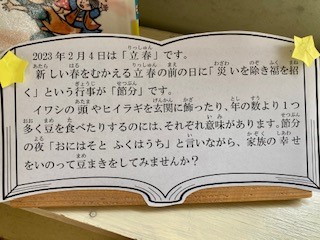 2023年2月4日は「立春」です。
新しい春をむかえる立春の前の日に「災いを除き福を招
く」という行事が「節分」です。
イワシの頭やヒイラギを玄関に飾ったり、年の数より1つ
多く豆を食べたりするのには、それぞれ意味があります。節分
の夜「おにはそと ふくはうち」と言いながら、家族の幸せ
をいのって豆まきをしてみませんか?